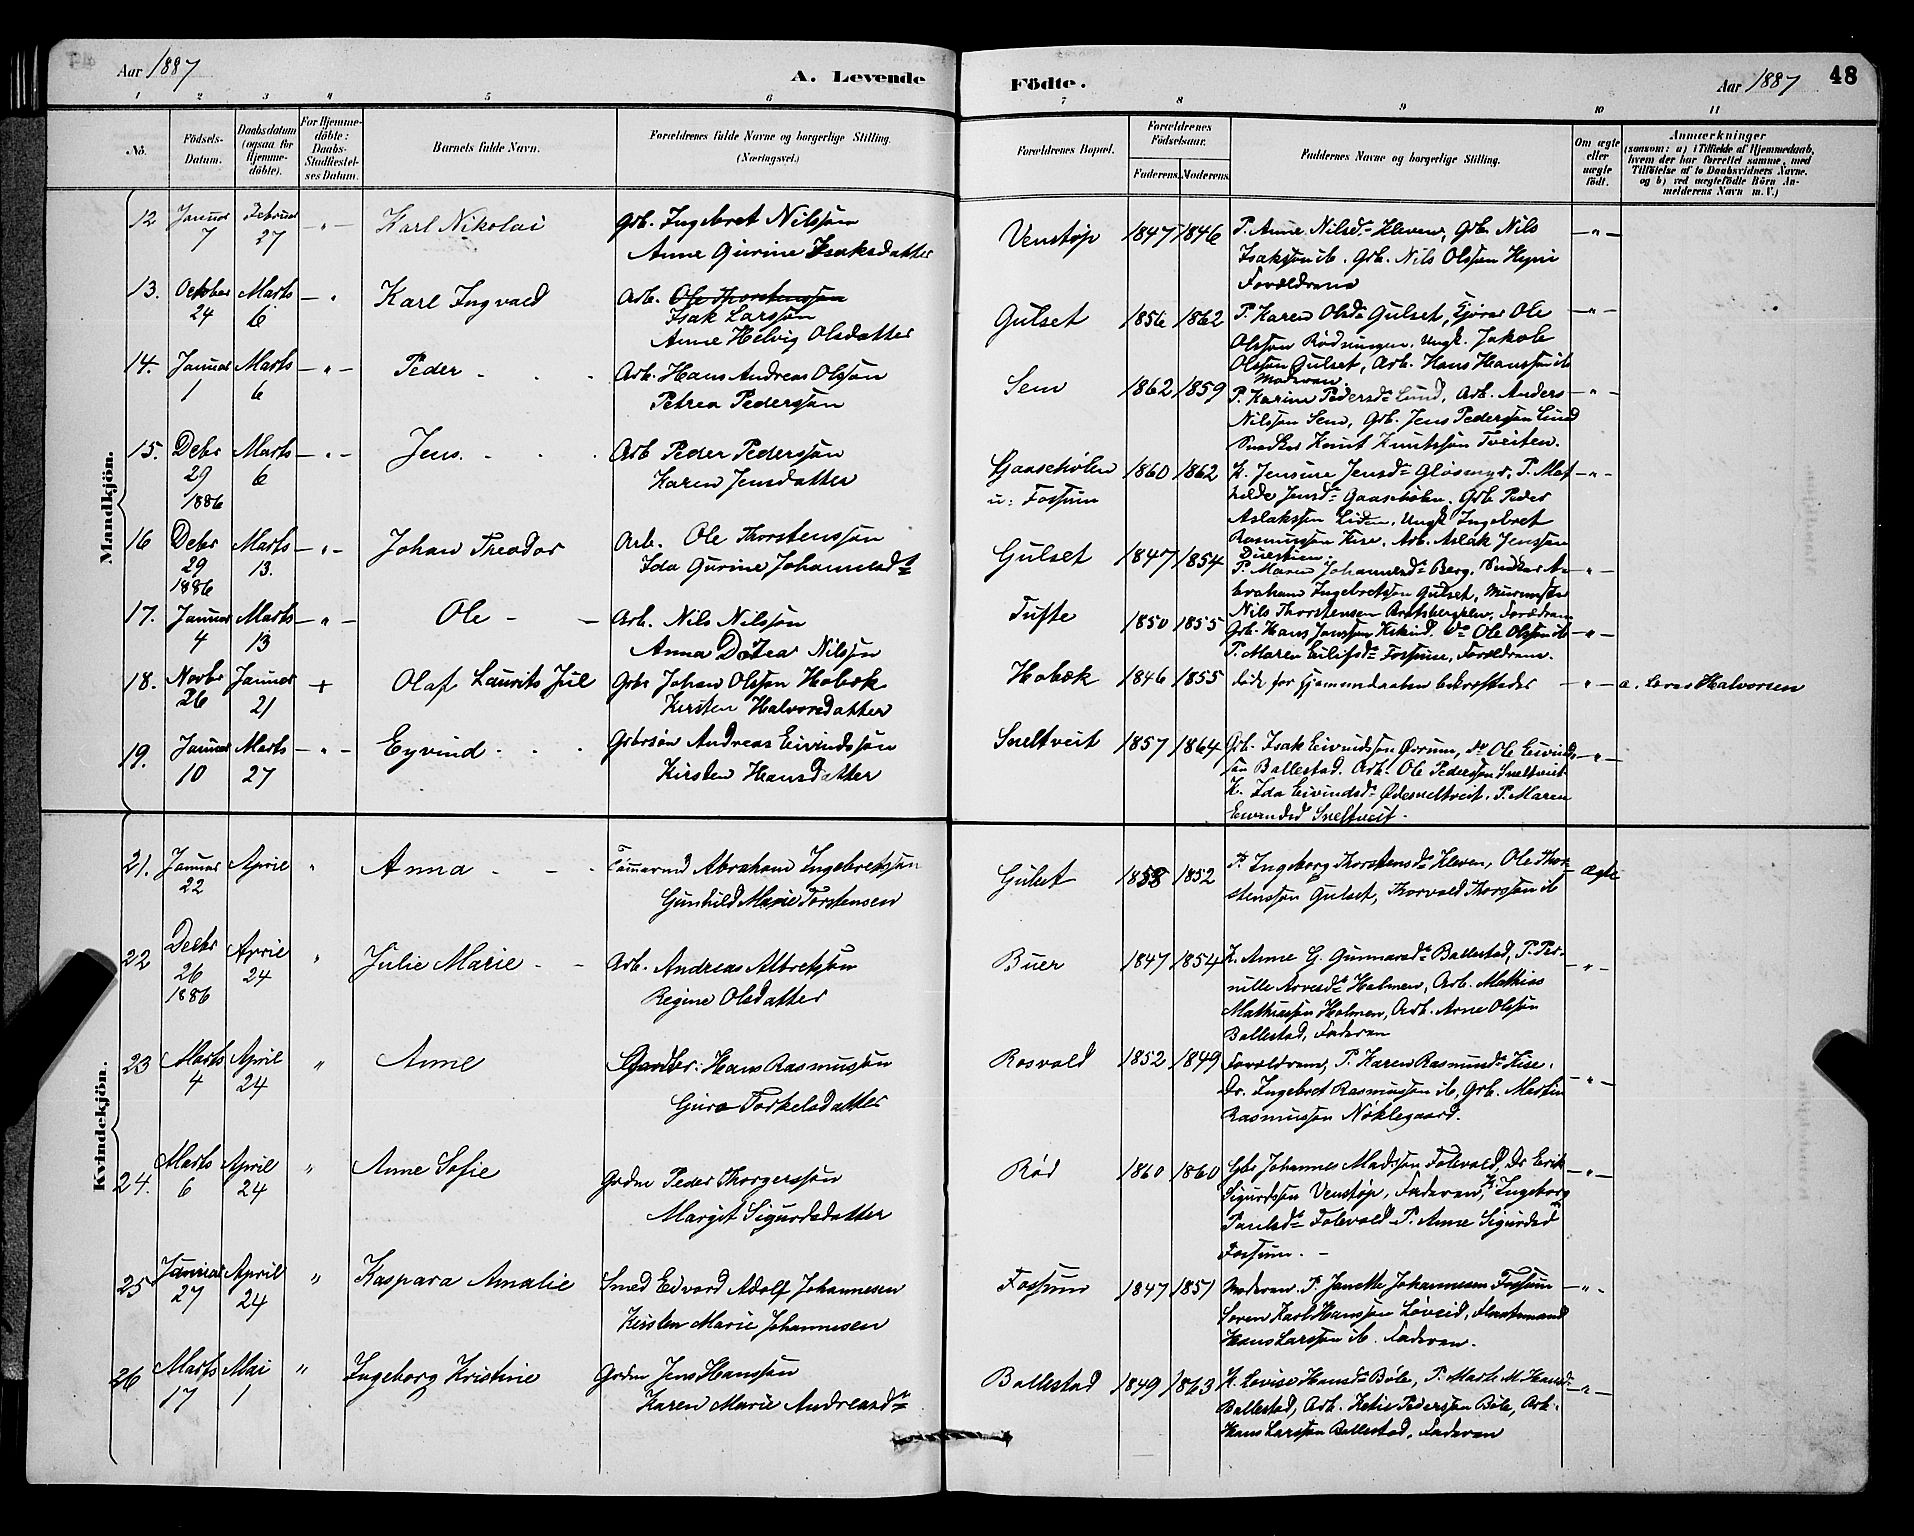 Aar 1887
A. Levende
Födte.
Aar 1887
48
1 2 3 4 5 6 7 8 9 10 11
No.
Födsels-Datum.
Daabsdatum (ogsaa for Hjemme-döbte).
For Hjemme-döbte: Daabs-Stadfæstel-ses Datum.
Barnets fulde Navn.
Forældrenes fulde Navne og borgerlige Stilling.
(Næringsvei.)
Forældrenes Bopæl.
Forældrenes Födselsaar.
Faderens. Moderens.
Faddernes Navne og borgerlige Stilling.
Om ægte eller uægte födt.
Anmærkninger
(saasom: a) i Tilfælde af Hjemmedaab, hvem der har forrettet samme, med Tilföielse af to Daabsvidners Navne, og b) ved uægtefödte Börn An-melderens Navn m. V.)
Mandkjön.
12 Januar 7 Februar 27 - " - Karl Nikolai Grb. Ingebret Nilssøn
Anne Gurine Isaksdatter
Venstøp 1847 1846 P. Anne Nilsd. Kleven, Grb. Nils
Isakssøn ib. Grb. Nils Olssøn Hyni
Forældrene - " -
13. October 24 Marts 6 - " Karl Ingvald Arb. Ole Thorstenssøn
Isak Larssøn
Anne Helvig Olsdatter
Gulset 1856 1862 P. Karen Olsd. Gulset, Ole
Olssøn Rødningen, Ungk. Jakob
Olssøn Gulset, Arb. Hans Hanssøn ib
Moderen. - " -
14. Januar 1 Marts 6 - " - Peder Arb. Hans Andreas Olssøn
Petrea Pederssøn
Sem 1862 1859 P. Karine Pedersd. Lund, Arb. Anders
Nilssøn Sem, Grb. Jens Pederssøn Lund
Snedker Knut Knutssøn Tveiten. - " -
15. Debr 29 1886 Marts 6 - " - Jens Arb Peder Pederssøn
Karen Jensdatter
Gaaseholen
u: Fossum 1860 1862 K. Jensine Jensd. Gløsmyr, P. Mat
hilde Jensd. Gaaseholen. Grb Peder
Aslakssøn Liden, Ungk Ingebret
Rasmussøn Kise, Arb. Aslak Jenssøn - " -
16 Debr 29 1886 Marts 13. - " - Johan Theodor Arb. Ole Thorstenssøn
Ida Gurine Johannesd.
Gulset 1847 1854 P. Maren Johannesd. Berg, Snedker A-
braham Ingebretssøn Gulset, Murmester
Nils Thorstensen Bratsbergklev, Forældrene - " -
17. Januar 4 Marts 13 - " - Ole Arb. Nils Nilssøn
Anna Dotea Nilssøn
Tufte 1850 1855 Grb. Hans Janssøn Ole Olssøn ib
P. Maren Eilifsd. Fossum, Forældrene. - " -
18. Novbr 26 Januar 21 + Olaf Laurits Jul Grbr Johan Olssøn Hobæk
Kirsten Halvorsdatter
Hobæk 1846 1855 døde før Hjemmedaaben bekræftedes - " - a. Lars Halvorsen
19. Januar 10 Marts 27 - " - Eyvind Grbrsøn Andreas Eivindssøn
Kirsten Hansdatter
Sneltveit 1857 1864 Grb. Isak Eivindssøn Ørum, do Ole Eivinds
søn Ballestad. Arb. Ole Pederssøn Sneltveit
K. Ida Eivindsd. Ødesneltveit. P. Maren
Eivindsd Sneltveit. - " -
Kvindekjön.
21. Januar 22 April " Anna Tømmermd Abraham Ingebretssøn
Gunhild Marie Torstensen
Gulset 1858 1852 P. Ingeborg Thorstensd. Kleven, Ole Thor-
stenssøn Gulset, Thorvald Thorssøn ib Ægte
22 Decbr 26 1886 April 24 " Julie Marie Arb. Andreas Albretssøn
Regine Olsdatter
Buer 1847 1854 K. Anne G. Gunnarsd. Ballestad, P. Per-
nille Arvesd. Holmen, Arb. Mathias
Mathiassøn Holmen, Arb. Arne Olssøn
Ballestad, Faderen - " -
23 Marts 4 April 24 " Anne Hans Rasmussøn
Guro Torkelsdatter
Rosvald 1852 1849 Forældrene, P. Karen Rasmusd. Kise.
Dr. Ingebret Rasmussøn ib, Grb. Martin
Rasmussøn Nøklegaard. - " -
24. Marts 6 April 24 " Anne Sofie Grdm Peder Thorgerssøn
Margit Sigurdsdatter
Rød 1860 1860 Gbr Johannes Madssøn Folevald, Dr Erik
Sigurdssøn Venstøp, Faderen, K. Ingeborg
Paulsd. Folevald P. Anne Sigurdsd
Fossum. - " -
25 Januar 27 April 24 " Kaspara Amalie Smed Edvard Adolf Johannesen
Kirsten Marie Johannesen
Fossum 1847 1851 Moderen. P. Janette Johannesen Fossum
Søren Karl Hanssøn Løveid,
Hans Larssøn ib. Faderen. - " -
26 Marts 17 Mai 1 " Ingeborg Kristine Grdm Jens Hanssøn
Karen Marie Andreasd.
Ballestad 1849 1863 K. Lovise Hansd. Bøle, P. Marte M. Hansd.
Ballestad, Arb. Ketil Pederssøn Bøle, Arb.
Hans Larssøn Ballestad, Faderen - " -